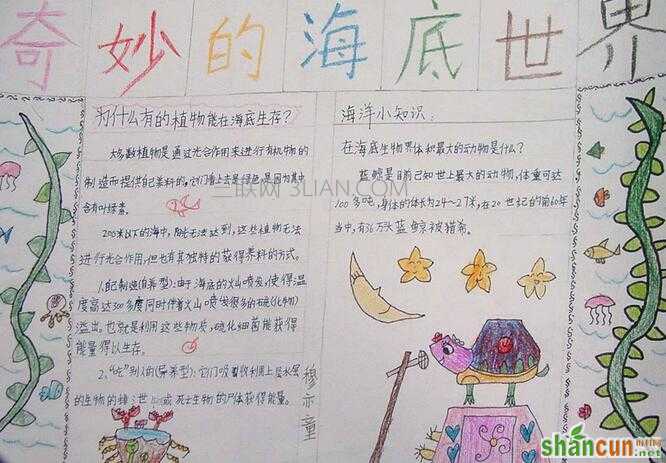 奇妙的海底世界
为什么有的植物能在海底生存?
大多数植物是通过光合作用来进行有机物的
制造而提供自己养料的。它们看上去是绿色,是因为其中
含有叶绿素。
200米以下的海中,阳光无法达到,这些植物无法
进行光合作用,但也有其独特的获得养料的方式。
1、配制造(自养型):由于海底的火山喷发,使得温
度高达300多度同时伴着火山喷发很多的硫化物
溢出,也就是利用这些物质,硫化细菌能获得
能量得以生存。
2、"吃"别人的(异养型):它们吸着收利用上层水宫
的生物的排泄 或死亡生物的尸体获得能量。
穆亦童
海洋小知识:
在海底生物界体积最大的动物是什么?
蓝鲸是目前已知世上最大的动物,体重可达
100多吨,身体的体长为24~27米,在20世纪的前60年
当中,有36万头蓝鲸被猎杀。
三联网 3LIAN.COM
shancun
.net